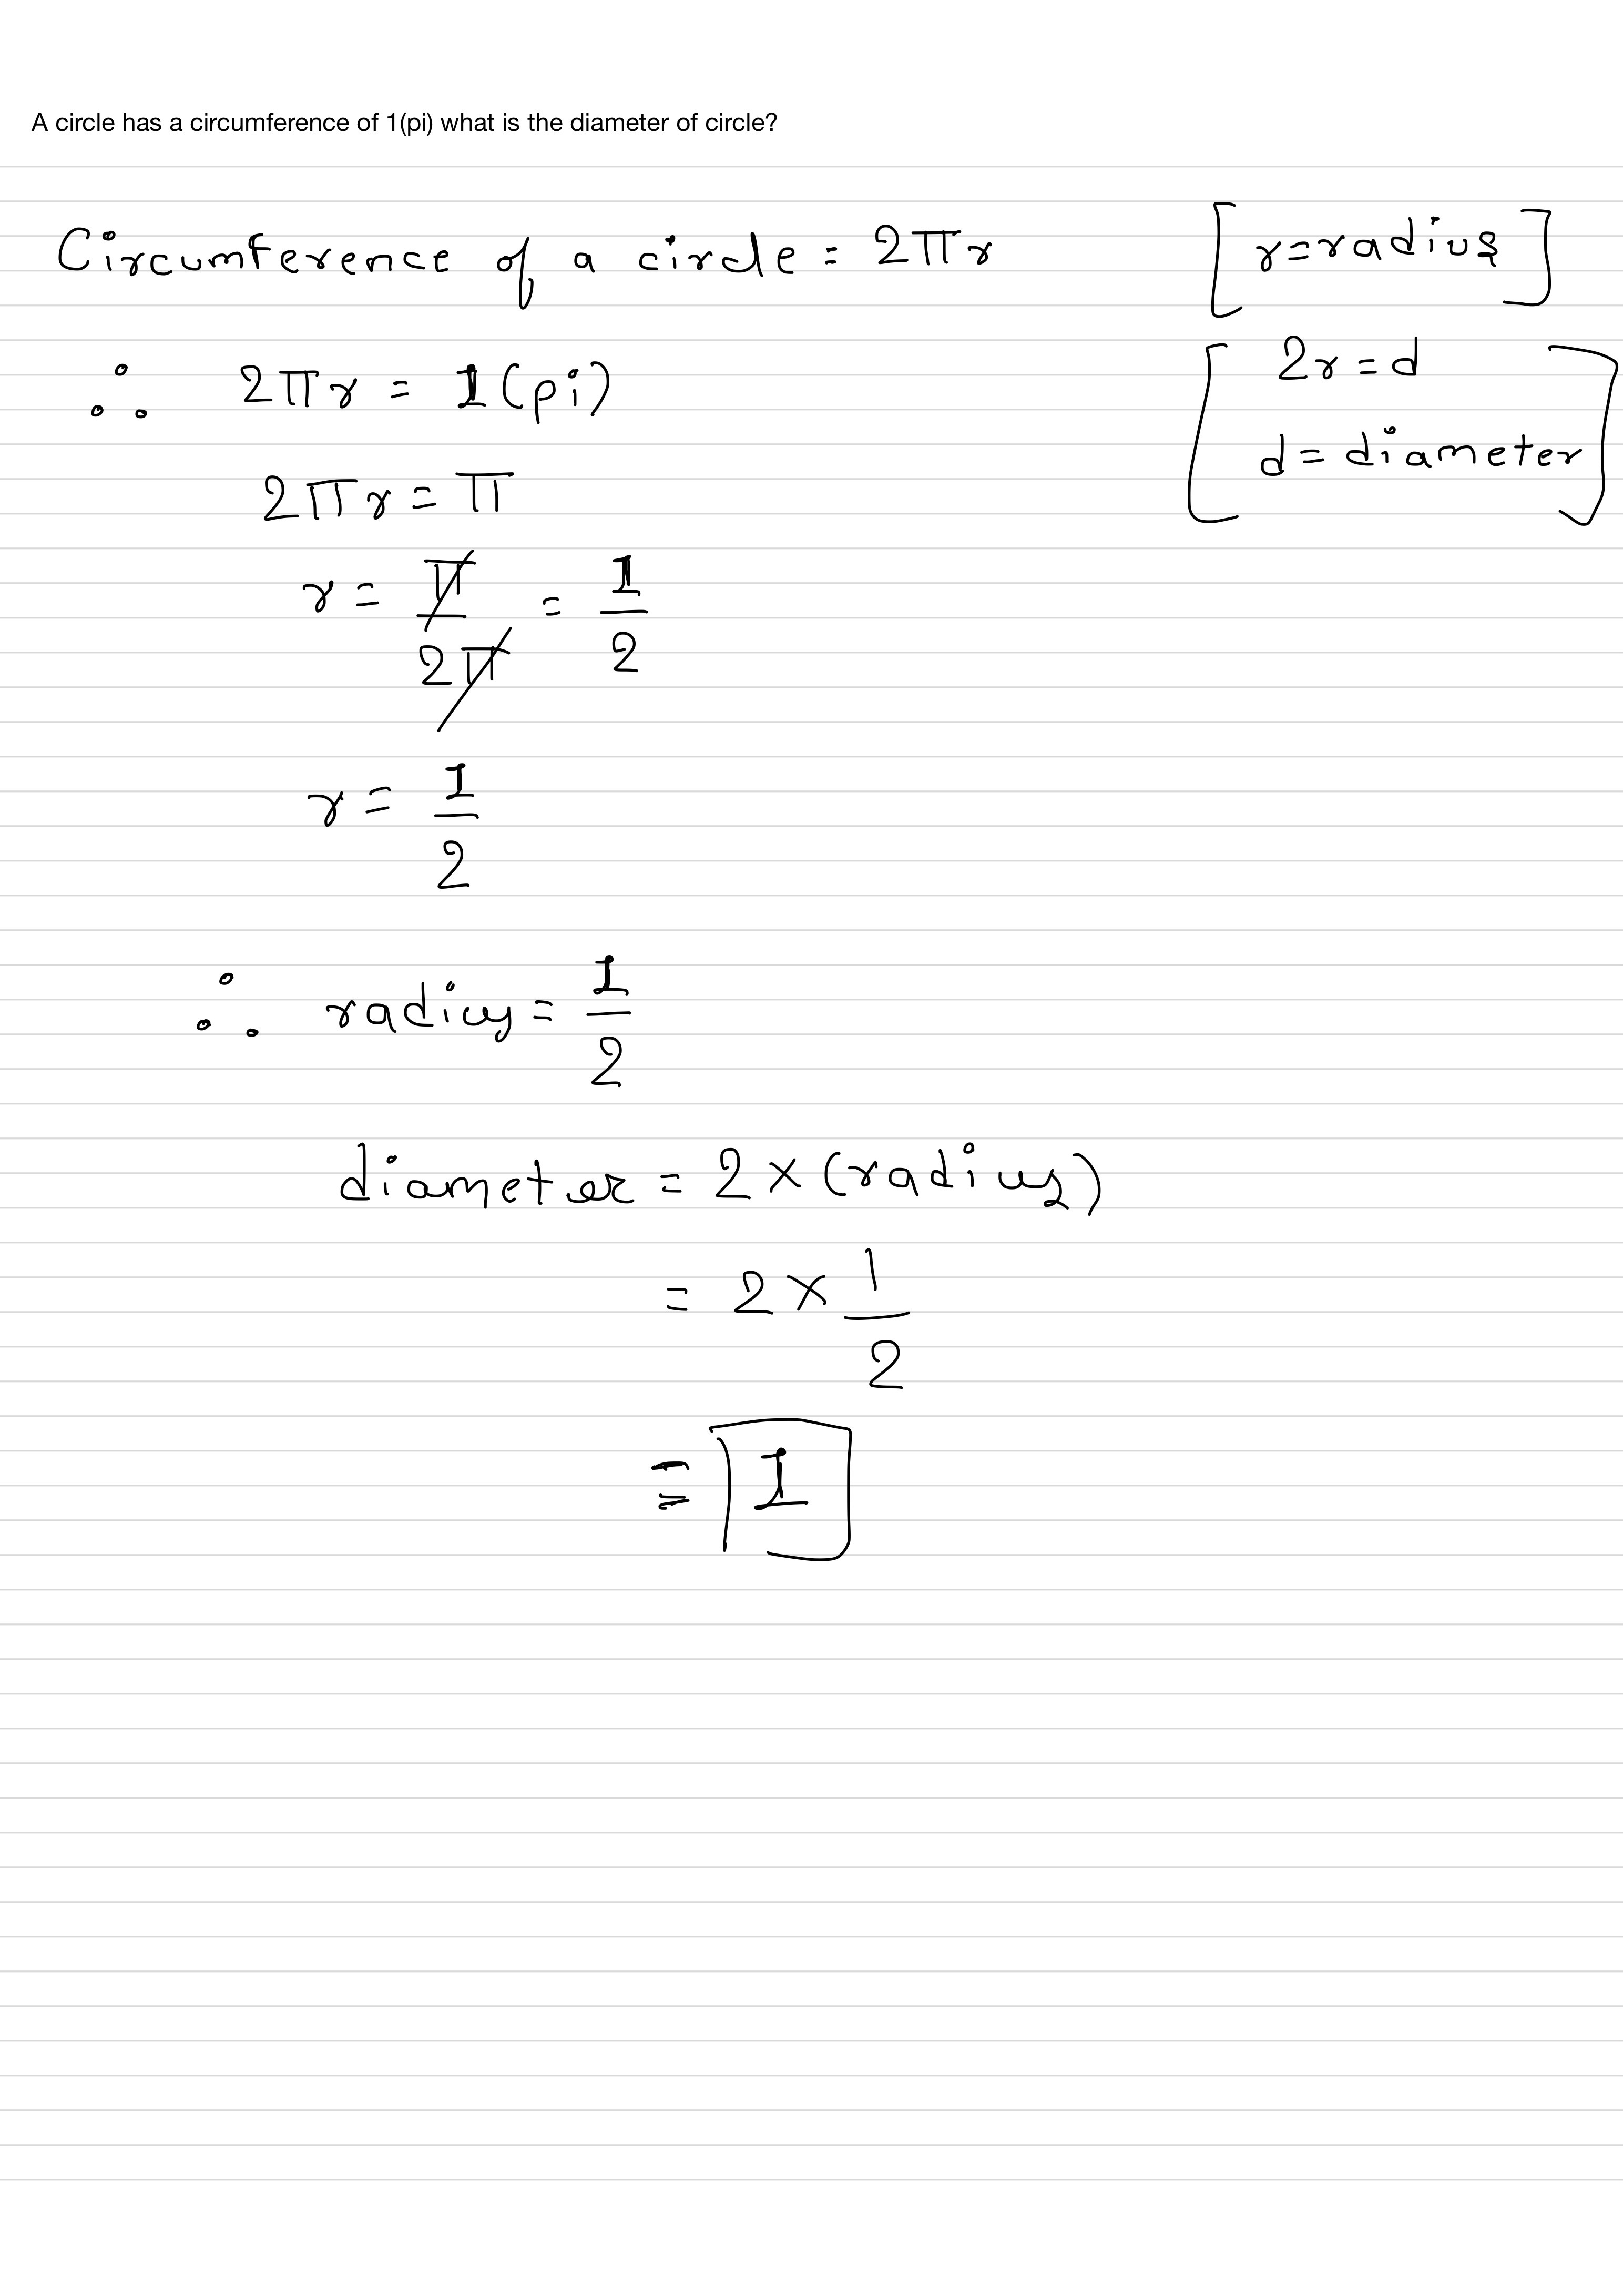 A circle has a circumference of 1(pi) what is the diameter of circle?
Circumference of a circle = 2πr [r=radius]
∴ 2πr = 1(pi) [2r=d
2πr = π d = diameter]
r = π/2π = 1/2
r = 1/2
∴ radius = 1/2
diameter = 2×(radius)
= 2 × 1/2
= 1